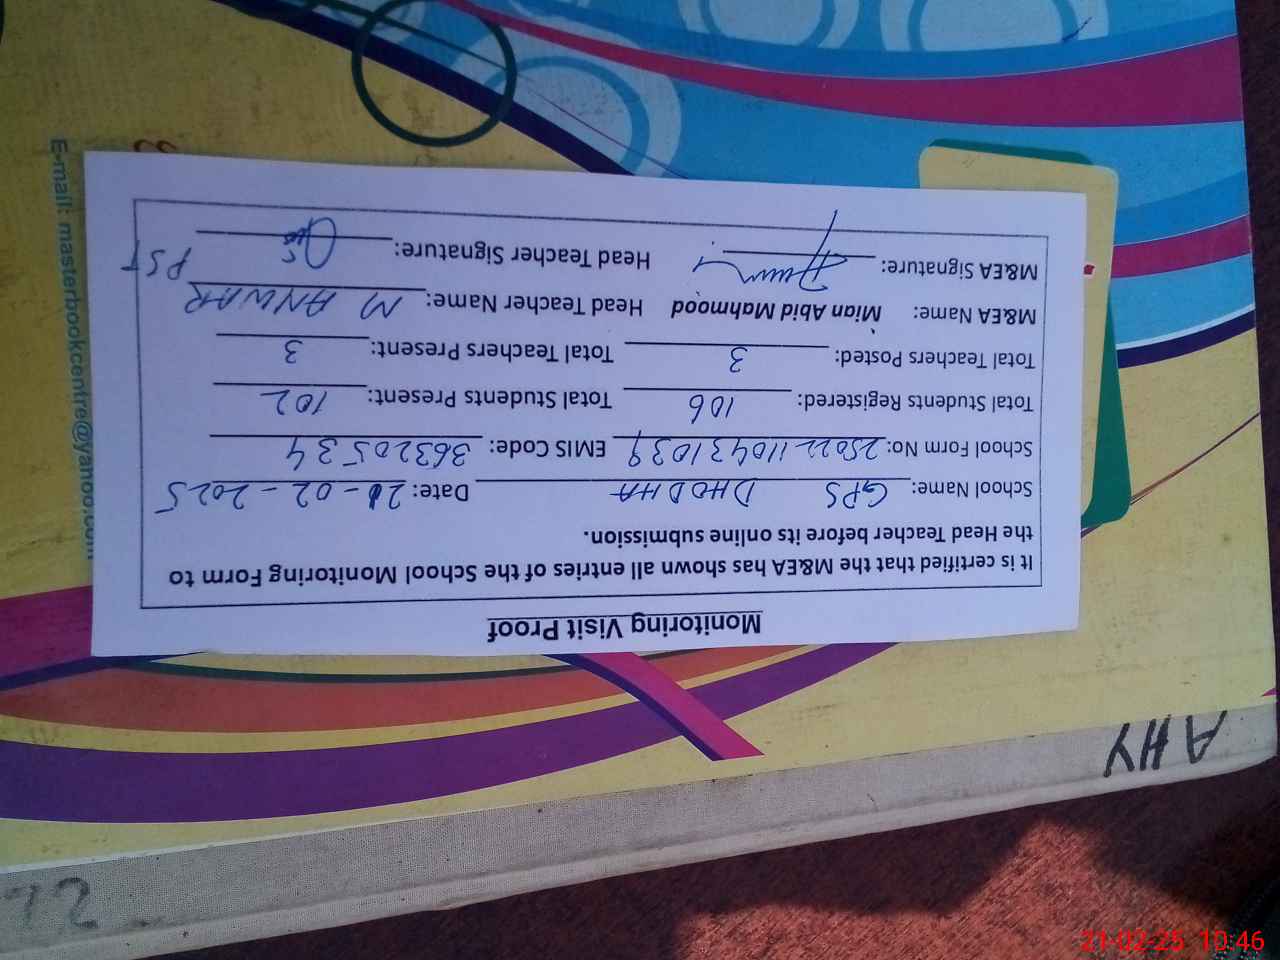 Monitoring Visit Proof
It is certified that the M&EA has shown all entries of the School Monitoring Form to
the Head Teacher before its online submission.
School Name: GPS DHODHA Date: 21-02-2025
School Form No: 25022110431039 EMIS Code: 36320534
Total Students Registered: 106 Total Students Present: 102
Total Teachers Posted: 3 Total Teachers Present: 3
M&EA Name: Mian Abid Mahmood Head Teacher Name: M ANWAR PST
M&EA Signature: Head Teacher Signature:
E-mail: masterbookcentre@yahoo.com
21-02-25 10:46